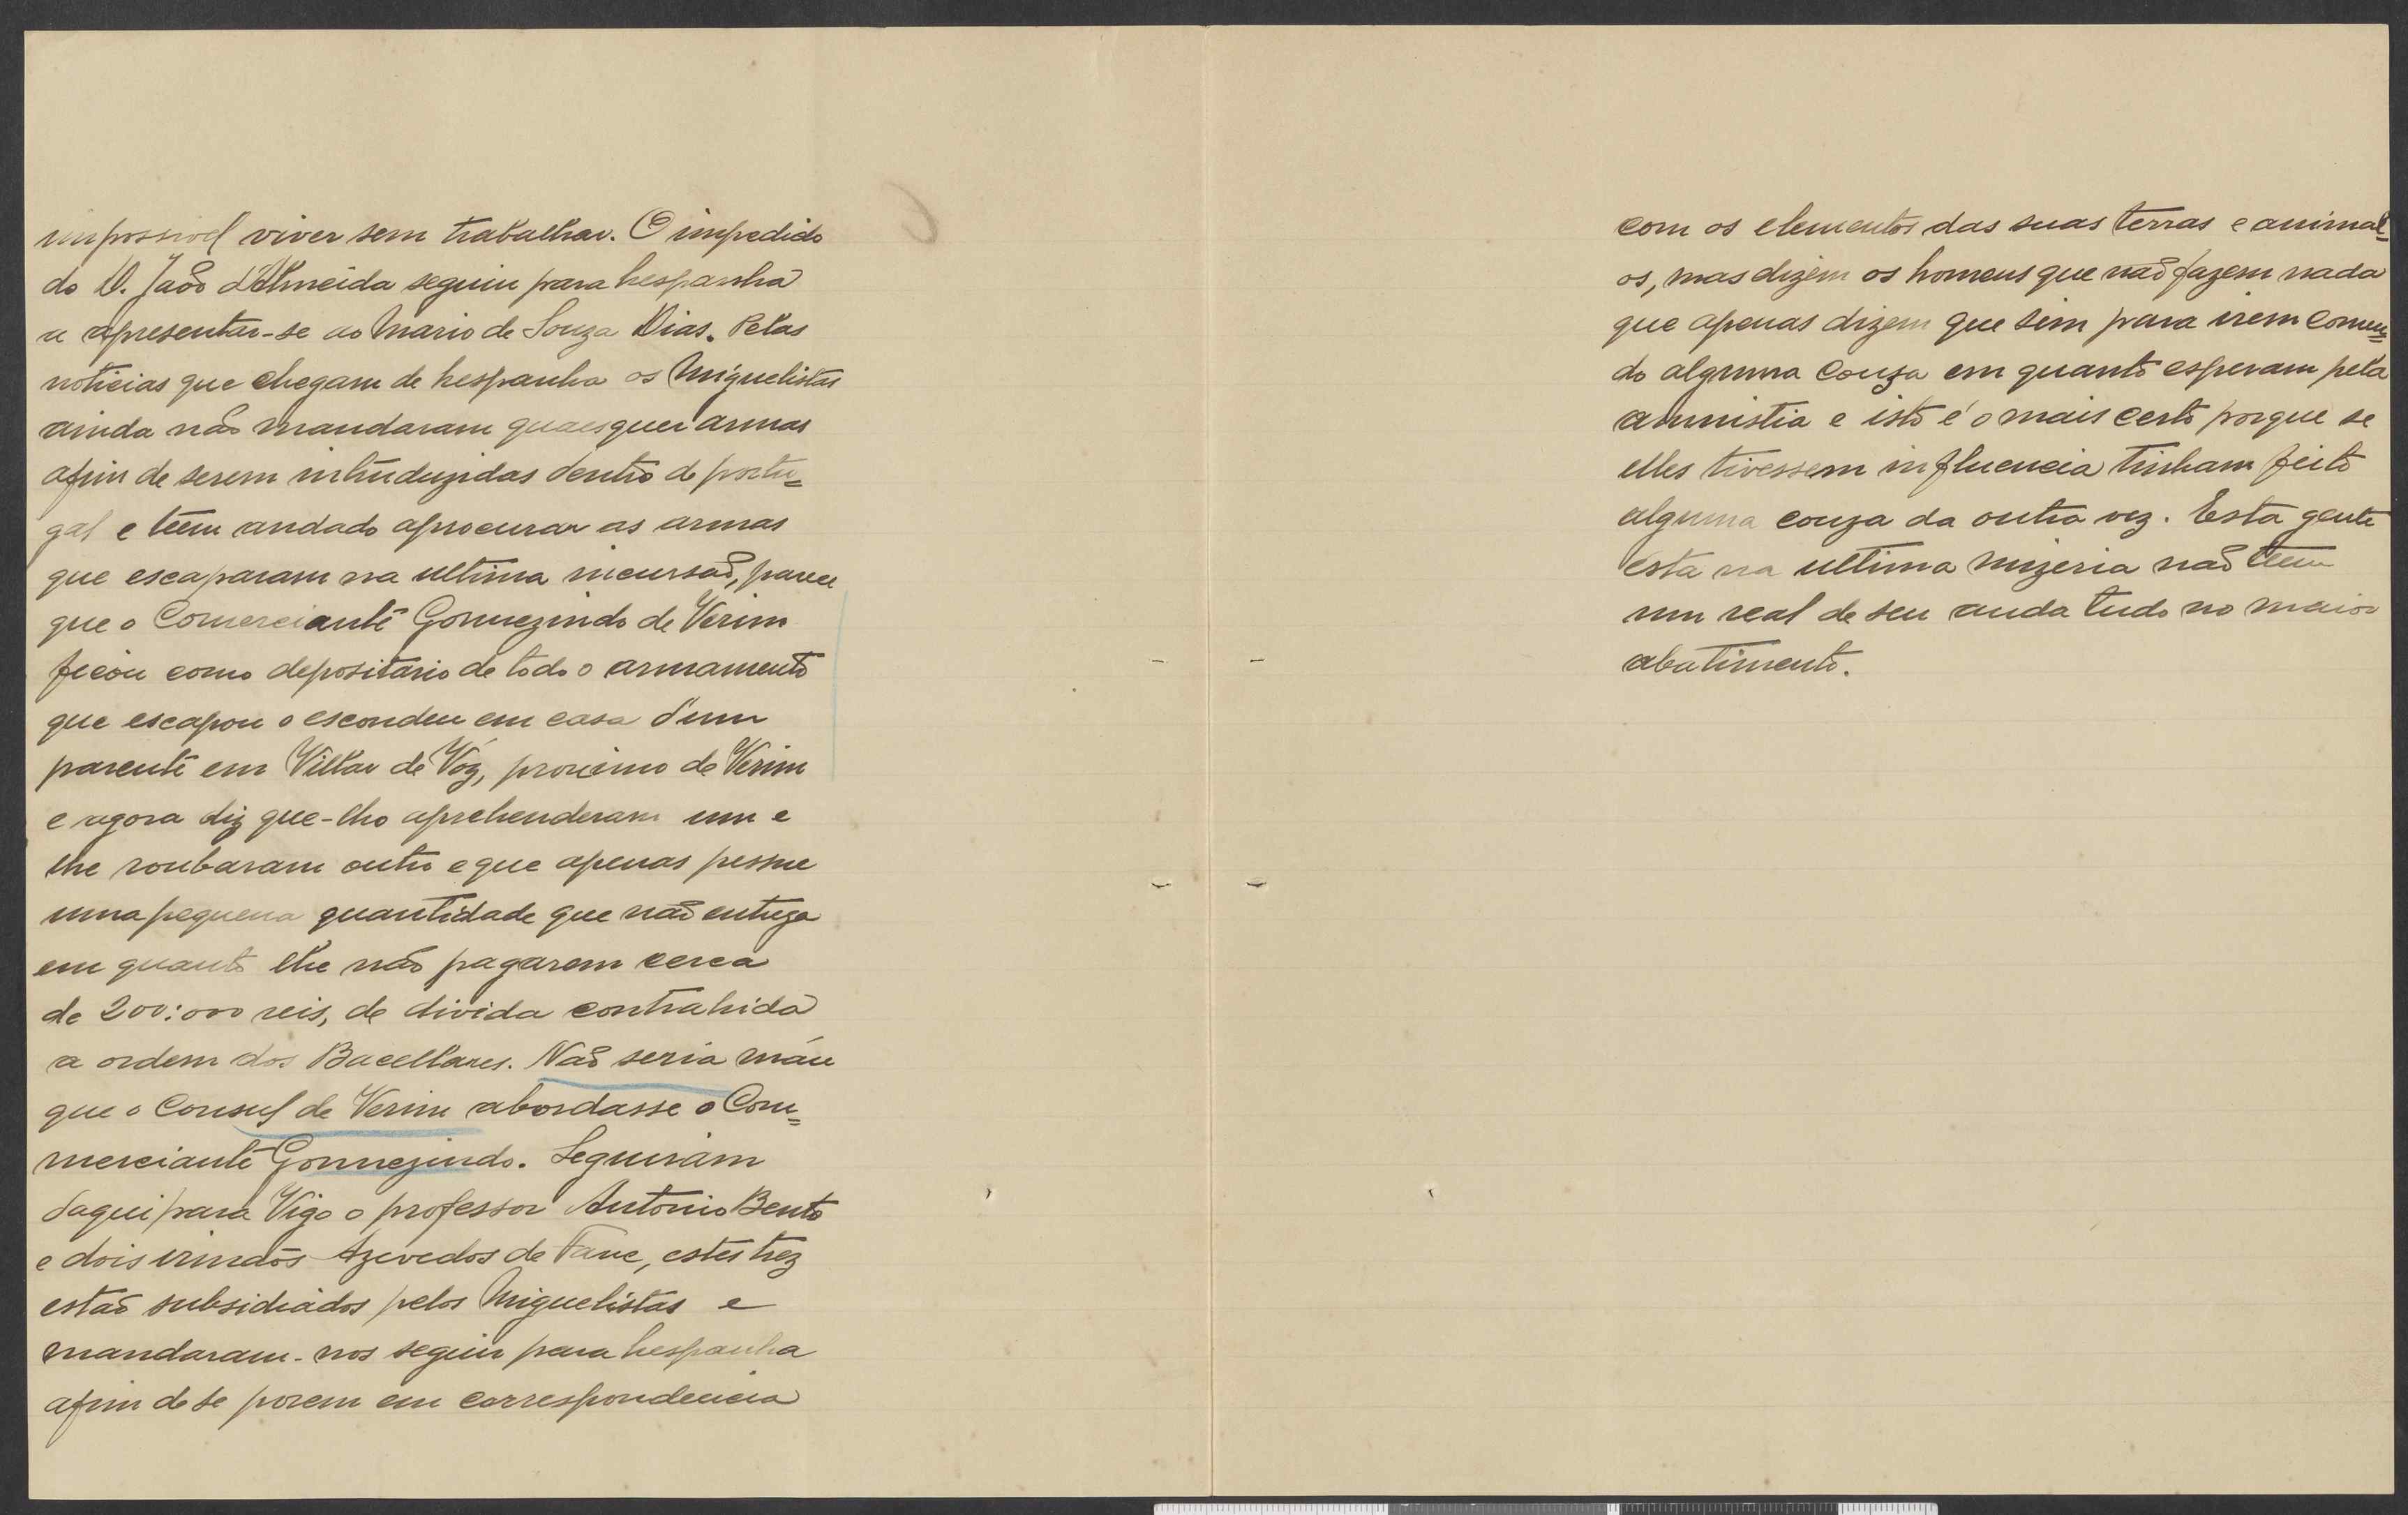 impossivel viver sem trabalhar. O impedido
do D. Jaoõ d'Almeida seguiu para hespanha
a apresentar-se ao Mario de Souza Dias. Pelas
noticias que chegam de hespanha os Miguelistas
ainda não mandaram quaesquer armas
afim de serem intruduzidas dentro de portu=
gal e teem andado aprocurar as armas
que escaparam na ultima incursaõ, parece
que o Comerciante Gomuezindo de Verim
ficou como depositario de todo o armamento
que escapou o escondeu em casa d'um
parente em Villar de Vóz, proximo de Verim
e agora diz que-lho aprehenderam um e
lhe roubaram outro e que apenas possue
uma pequena quantidade que naõ entrega
em quanto lhe não pagarem cerca
de 200:000 reis, de divida contrahida
a ordem dos Bacellares. Naõ seria máu
que o Consul de Verim abordasse o Com=
merciante Gomuezindo. Seguiram
daqui para Vigo o professor Antonio Bento
e dois irmãos Azevedos de Fave, estes trez
estaõ subsidiados pelos Miguelistas e
mandaram-nos seguir para hespanha
afim de se porem em correspondencia
com os elementos das suas terras e animal=
os, mas dizem os homens que naõ fazem nada
que apenas dizem que sim para irem comen=
do alguma couza em quanto esperam pela
amnistia e isto é o mais certo porque se
elles tivessem influencia tinham feito
alguma couza da outra vez. Esta gente
esta na ultima mizeria naõ tem
um real de seu anda tudo no maior
abatimento.